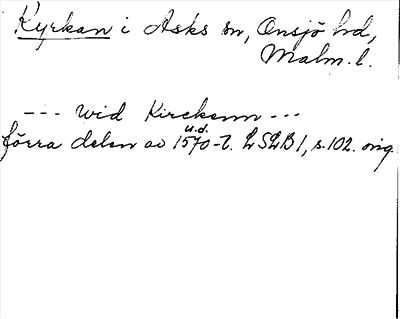 Kyrkan i Asks sn, Onsjö hd,
Malm. l.
--- wid Kirckenn ---
u.d.
förra delen av 1570-t. LSLB 1, s. 102. orig